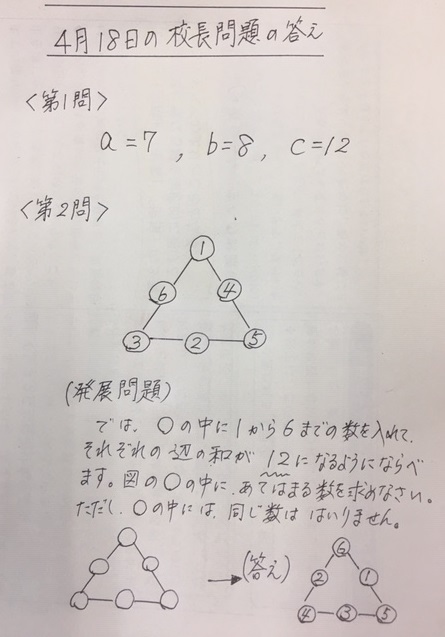 4月18日の校長問題の答え
〈第1問〉
a=7 , b=8, c=12
〈第2問〉
1
6 4
3 2 5
(発展問題)
では、○の中に1から6までの数を入れて、
それぞれの辺の和が12になるようにならべ
ます。図の○の中に、あてはまる数を求めなさい。
ただし、○の中には、同じ数ははいりません。
→(答え)
6
2 1
4 3 5